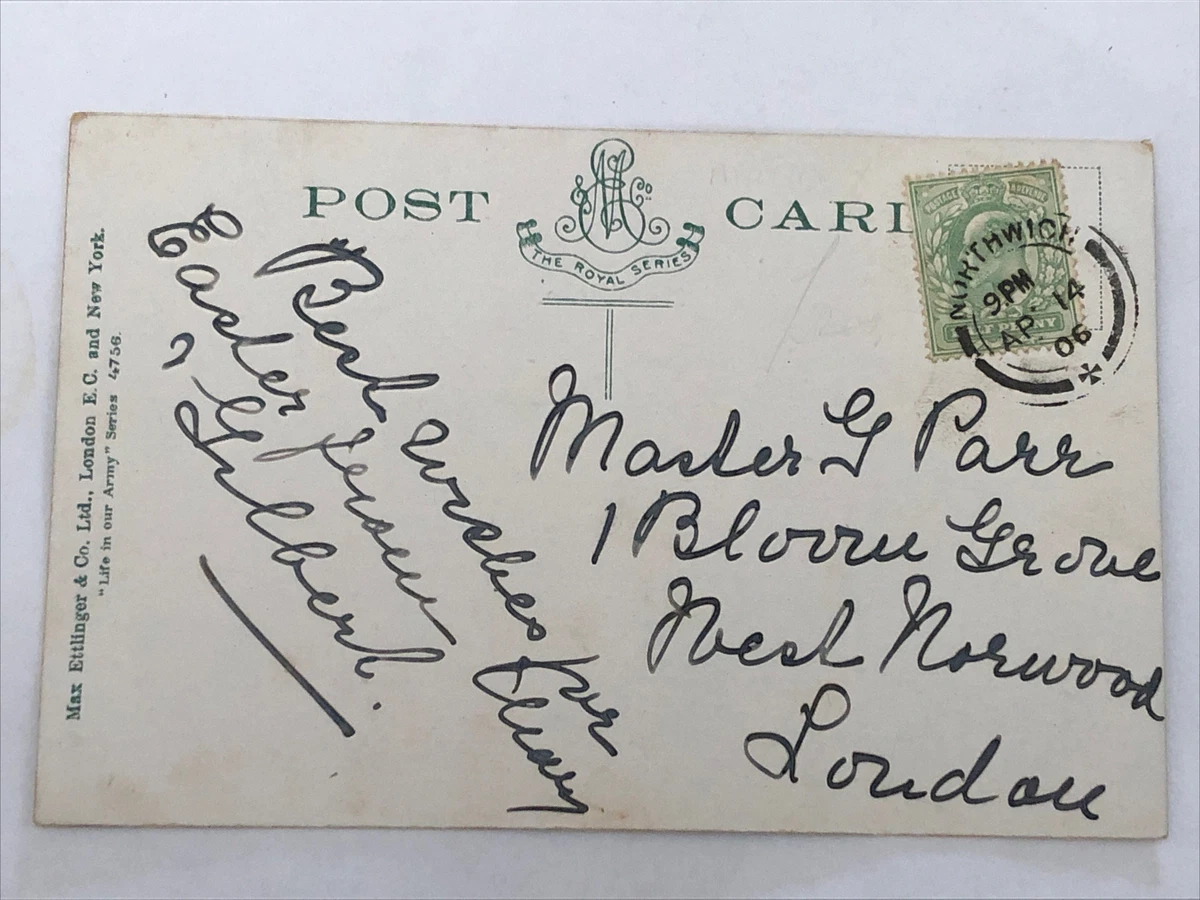 POST CARD
M E & Co
THE ROYAL SERIES
POSTAGE REVENUE
HALF PENNY
NORTHWICH
9.PM
AP. 14
06
Max Ettlinger & Co. Ltd., London E.C. and New York.
"Life in our Army" Series 4756.
Best wishes for
Easter from Mary
& Gilbert.
Master G Parr
1 Bloom Grove
West Norwood
London